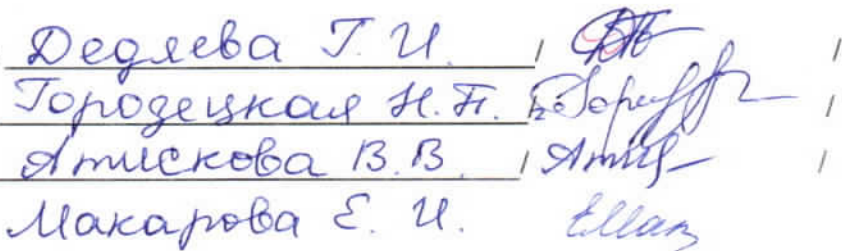 Дедяева Г. И. / /
Городецкая Н. П. /
Атискова В. В. / Атис /
Макарова Е. И. ЕМак